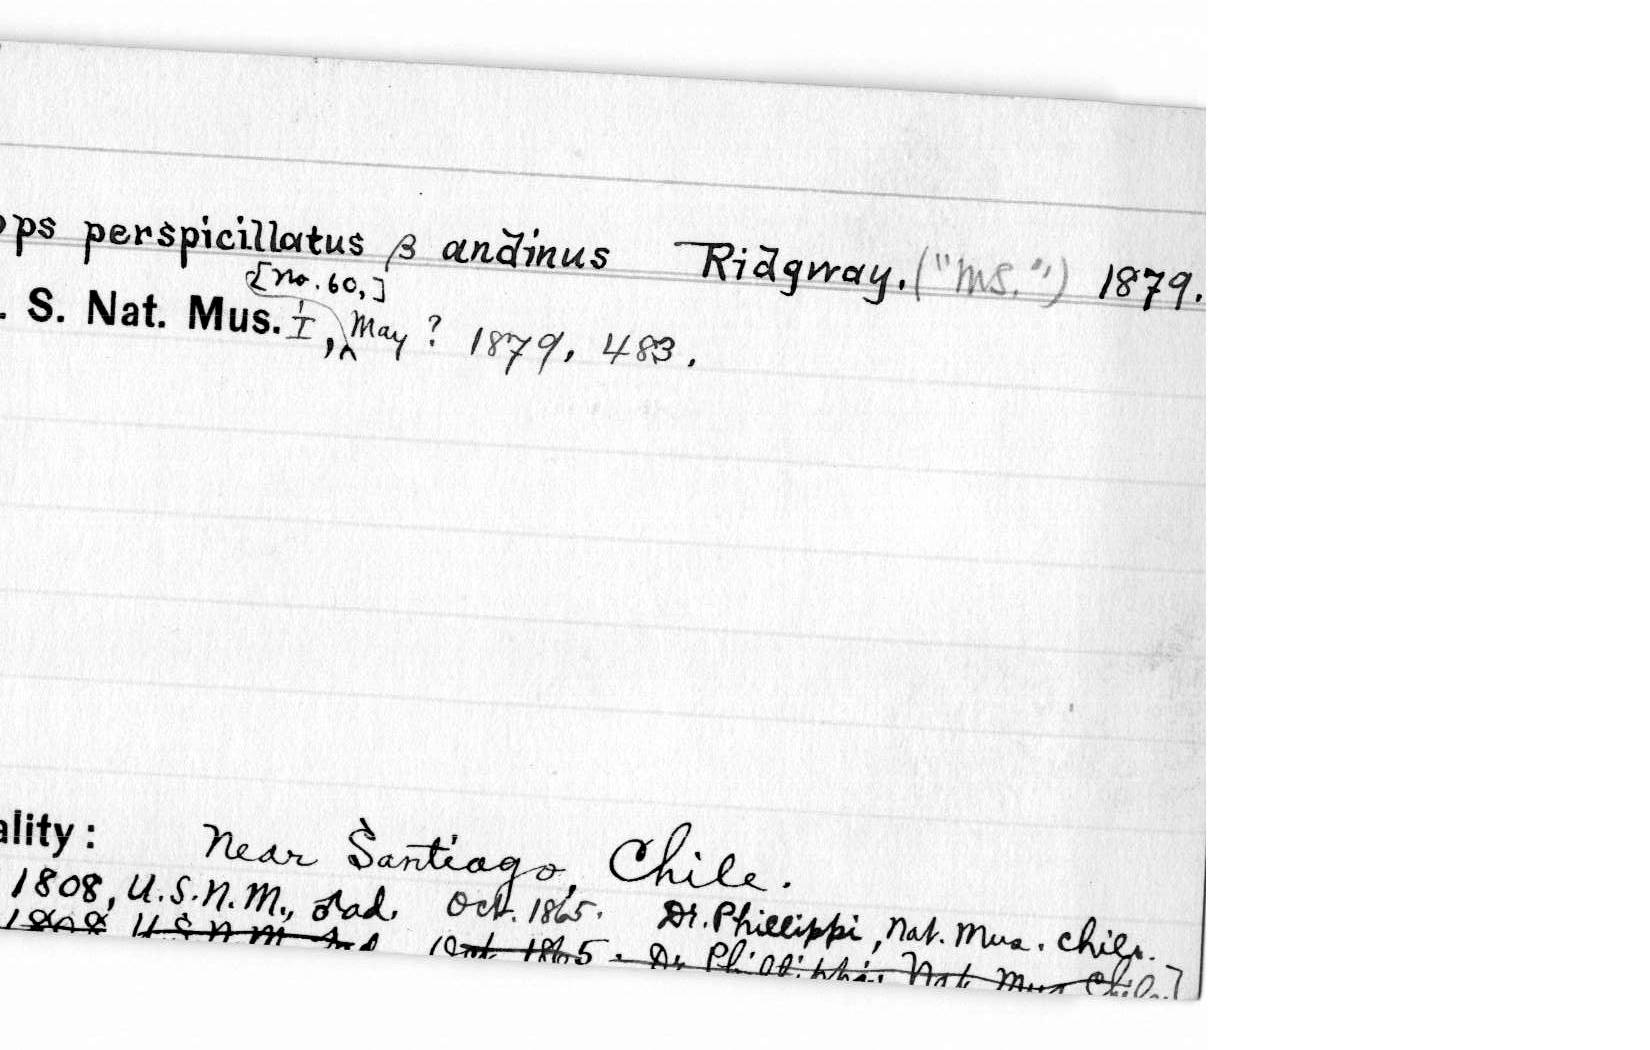 ops perspicillatus β andinus Ridgway. ("MS.") 1879.
[no. 60,]
. S. Nat. Mus. I, ^ May ? 1879, 483.
ality: Near Santiago, Chile.
1808, U.S.N.M., ♂ad. Oct. 1865. Dr. Phillippi, Nat. Mus. Chile.
1808 U.S.N.M. Oct. 1865. Dr. Phillippi, Nat. Mus. Chile.]